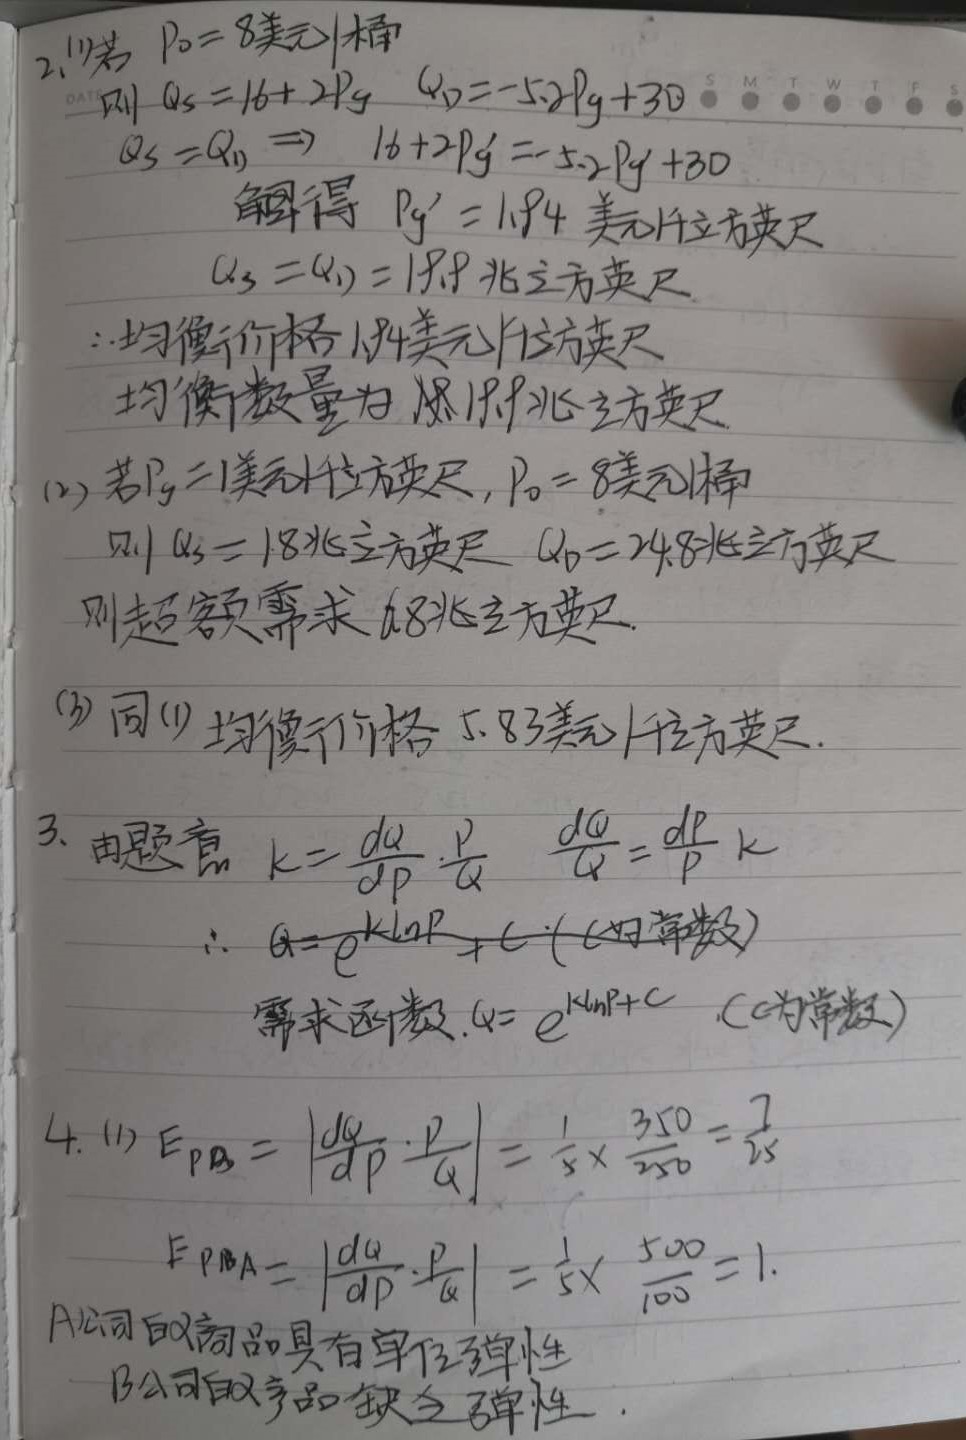 2. (1) 若 P₀ = 8美元/桶
DATE S M T W T F S
则 Qs = 16 + 2Pg Q_D = -5.2Pg + 30
Qs = Q_D ⇒ 16 + 2Pg' = -5.2Pg' + 30
解得 Pg' = 1.94 美元/千立方英尺
Qs = Q_D = 19.9 兆立方英尺
∴均衡价格 1.94美元/千立方英尺
均衡数量为 19.9兆立方英尺
(2) 若Pg = 1美元/千立方英尺, P₀ = 8美元/桶
则 Qs = 18兆立方英尺 Q_D = 24.8兆立方英尺
则超额需求 6.8兆立方英尺.
(3) 同(1) 均衡价格 5.83美元/千立方英尺.
3. 由题意 k = dQ/dP · P/Q dQ/Q = dP/P k
∴ Q = e^{klnP} + C (C为常数)
需求函数. Q = e^{klnP+C} .(C为常数)
4. (1) E_PB = |dQ/dP · P/Q| = 1/5 × 350/250 = 7/25
E_PA = |dQ/dP · P/Q| = 1/5 × 500/100 = 1.
A公司的商品具有单位弹性
B公司的产品缺乏弹性.